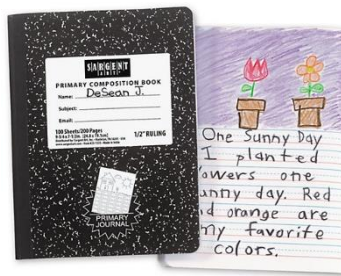 SARGENT
ART
PRIMARY COMPOSITION BOOK
Name: DeSean J.
Subject:
Email:
100 Sheets/200 Pages
1/2" RULING
PRIMARY
JOURNAL
One Sunny Day
I planted
owers one
unny day. Red
d orange are
my favorite
colors.